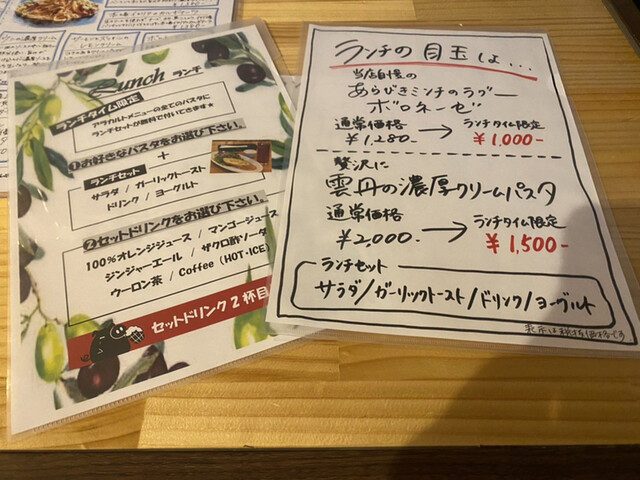 Lunch ランチ
ランチタイム限定
アラカルトメニューの全てのパスタに
ランチセットが無料で付いてきます★
❶お好きなパスタをお選び下さい。
+
ランチセット
サラダ / ガーリックトースト
ドリンク / ヨーグルト
❷セットドリンクをお選び下さい。
100%オレンジジュース / マンゴージュース
ジンジャーエール / ザクロ酢ソーダ
ウーロン茶 / Coffee (HOT・ICE)
セットドリンク2杯目
ランチの目玉しょ...
当店自慢の
あらびきミンチのラグー
ボロネーゼ
通常価格 → ランチタイム限定
¥1,280- ¥1,000-
贅沢に
雲丹の濃厚クリームパスタ
通常価格 → ランチタイム限定
¥2,000- ¥1,500-
ランチセット
サラダ/ガーリックトースト/ドリンク/ヨーグルト
表示は税抜価格です